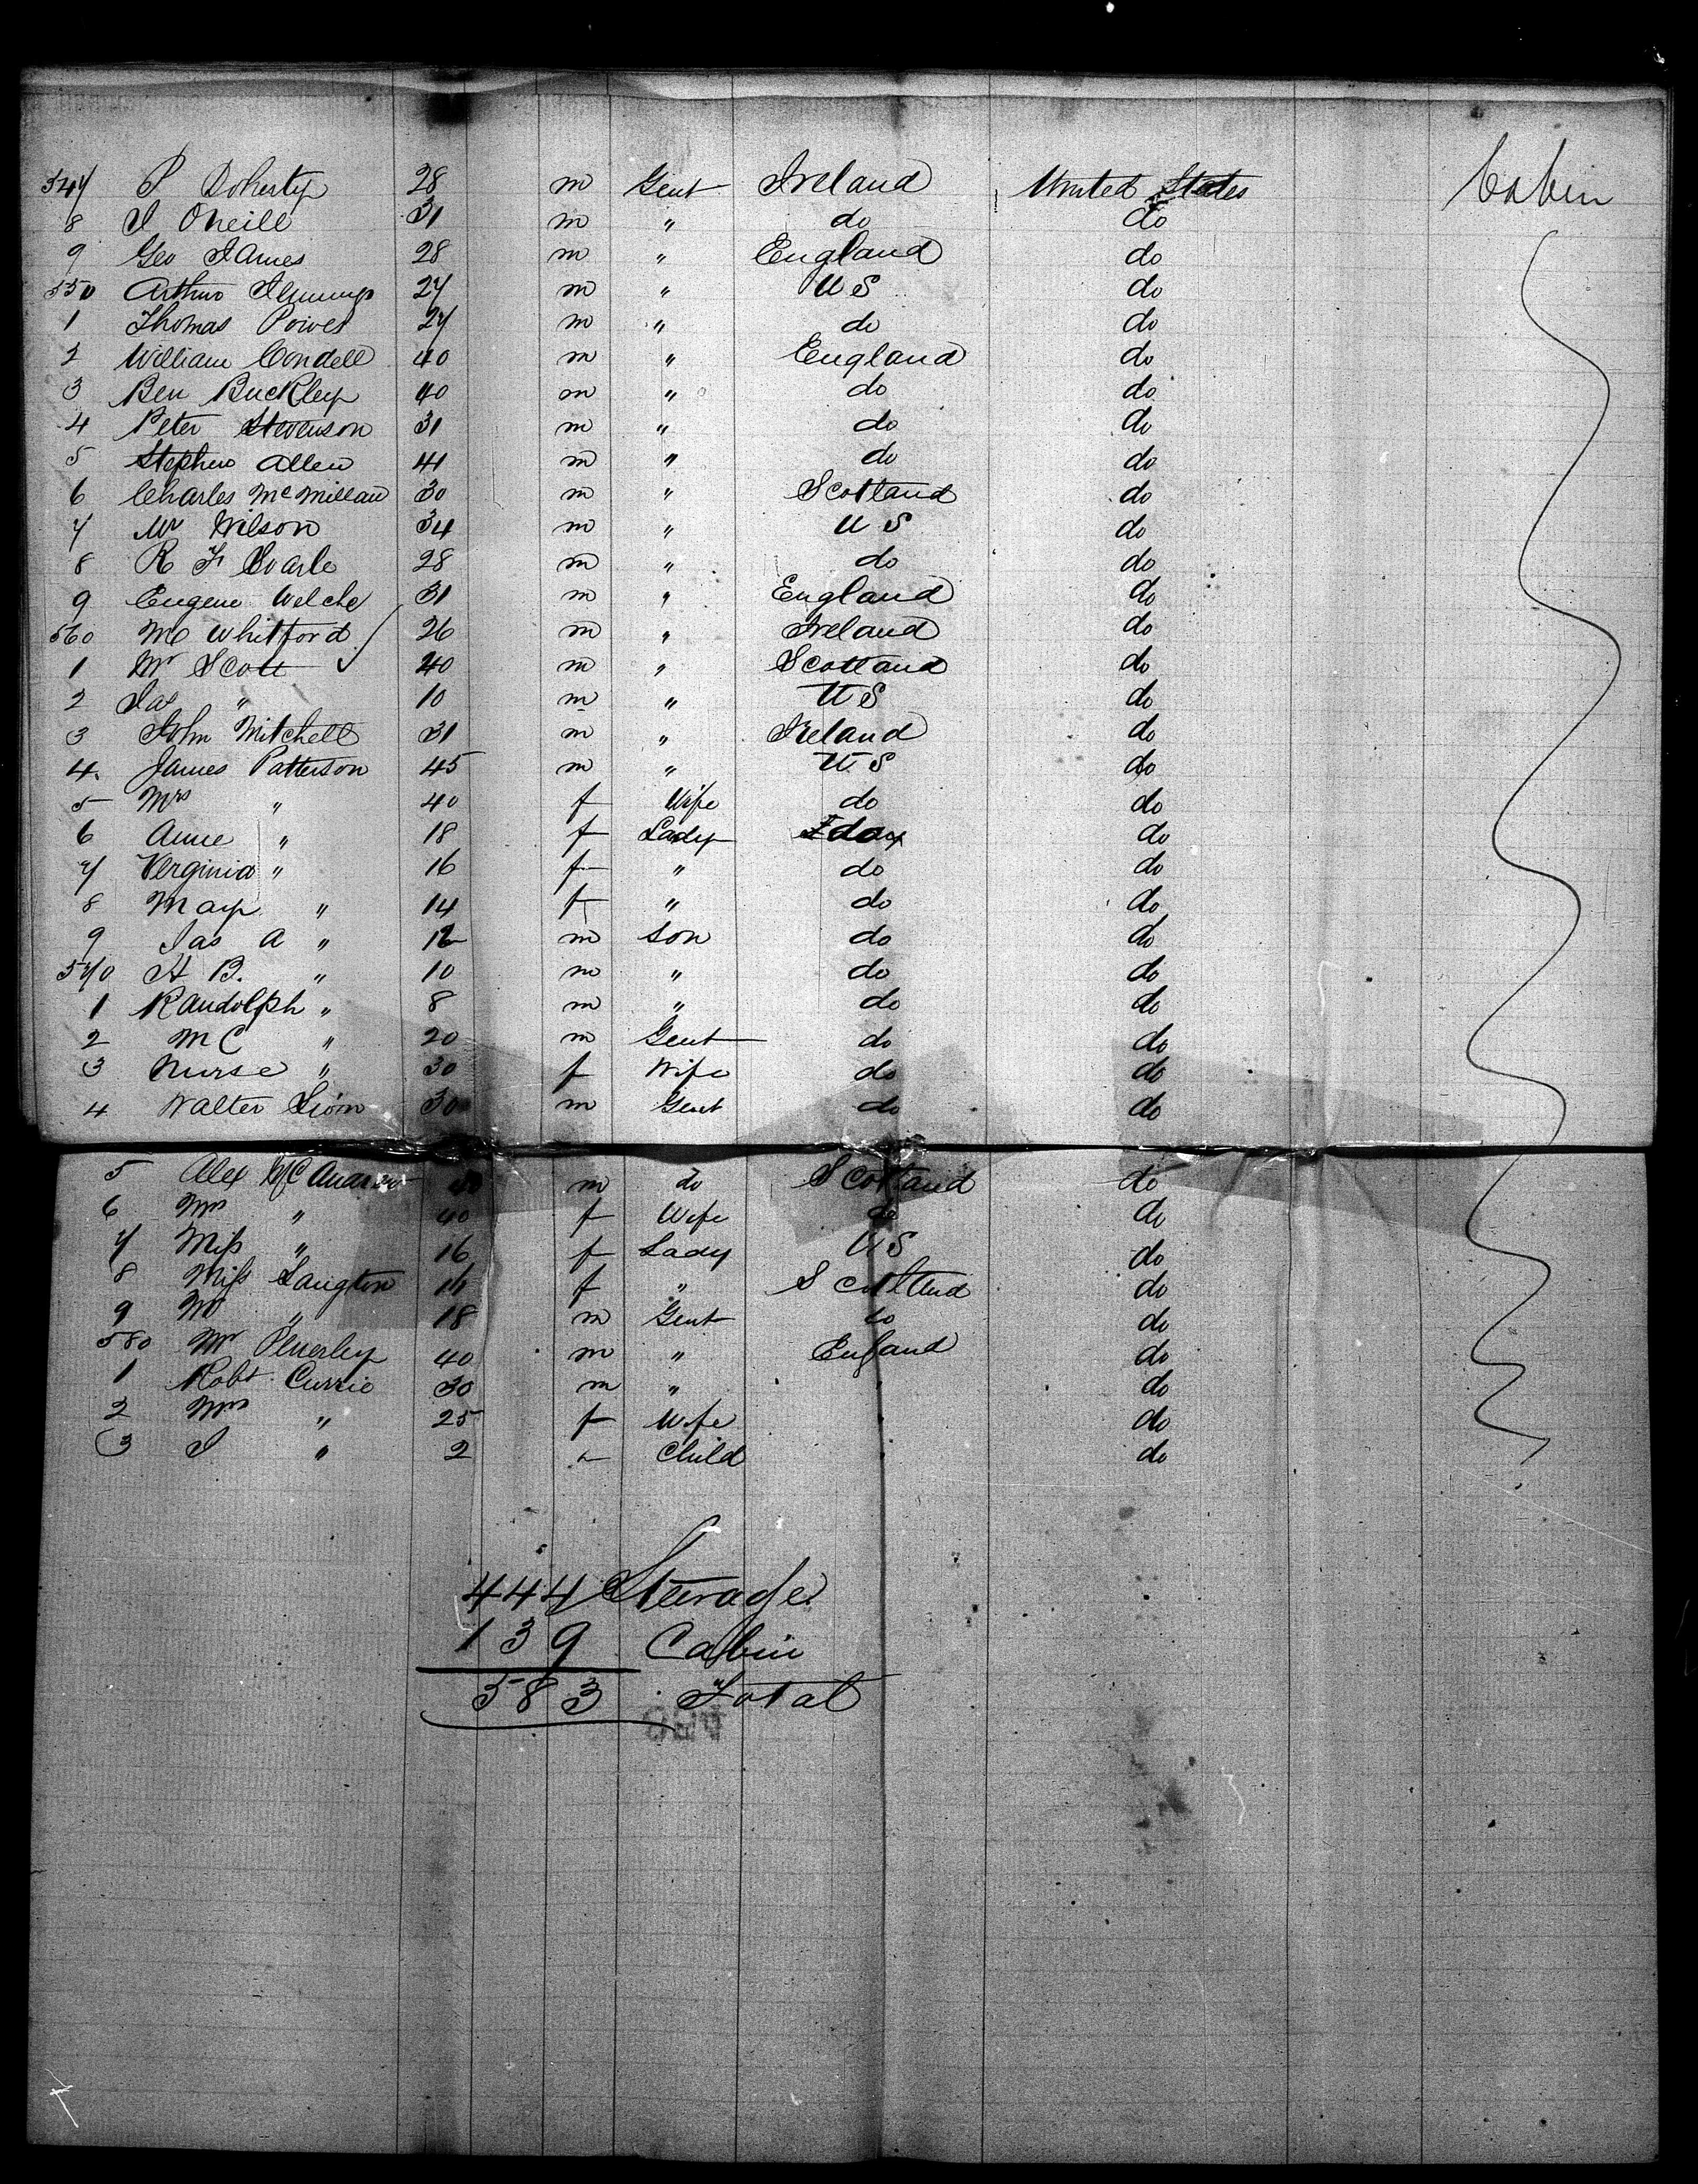 547 P Doherty 28 m Gent Ireland United States Cabin
8 J Oneill 31 m " do do
9 Geo James 28 m " England do
550 Arthur 27 m " U S do
1 Thomas Power 27 m " do do
2 William Condell 40 m " England do
3 Ben Buckley 40 m " do do
4 Peter Stevenson 31 m " do do
5 Stephen Allen 41 m " do do
6 Charles McMillan 30 m " Scotland do
7 Mr Wilson 34 m " U S do
8 R F Searle 28 m " do do
9 Eugene Welche 31 m " England do
560 Whitford 26 m " Ireland do
1 Mr Scott 40 m " Scotland do
2 Jas " 10 m " U S do
3 John Mitchell 31 m " Ireland do
4. James Patterson 45 m " U S do
5 Mrs " 40 f Wife do do
6 Anne " 18 f Lady do do
7 Verginia " 16 f " do do
8 May " 14 f " do do
9 Jas A " 12 m Son do do
570 H B. " 10 m " do do
1 Randolph " 8 m " do do
2 M C " 20 m Gent do do
3 Nurse " 30 f Wife do do
4 Walter 30 m Gent do do
5 Alex m do Scotland do
6 Mrs " 40 f Wife do do
7 Miss " 16 f Lady U S do
8 Miss Langton 16 f " Scotland do
9 Mr " 18 m Gent do do
580 Mr 40 m " England do
1 Robt Currie 30 m " do
2 Mrs " 25 f Wife do
3 J " 2 Child do
444 Steerage
139 Cabin
583 Total